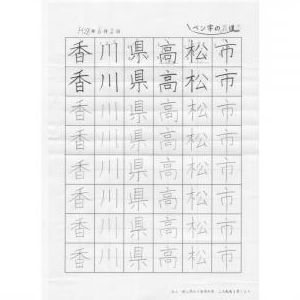 H28年6月2日
ペン字の道
香川県高松市
香川県高松市
香川県高松市
香川県高松市
香川県高松市
香川県高松市
香川県高松市
香川県高松市